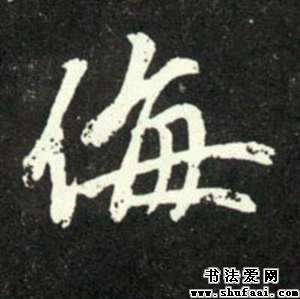 侮
书法爱网
www.shufaai.com